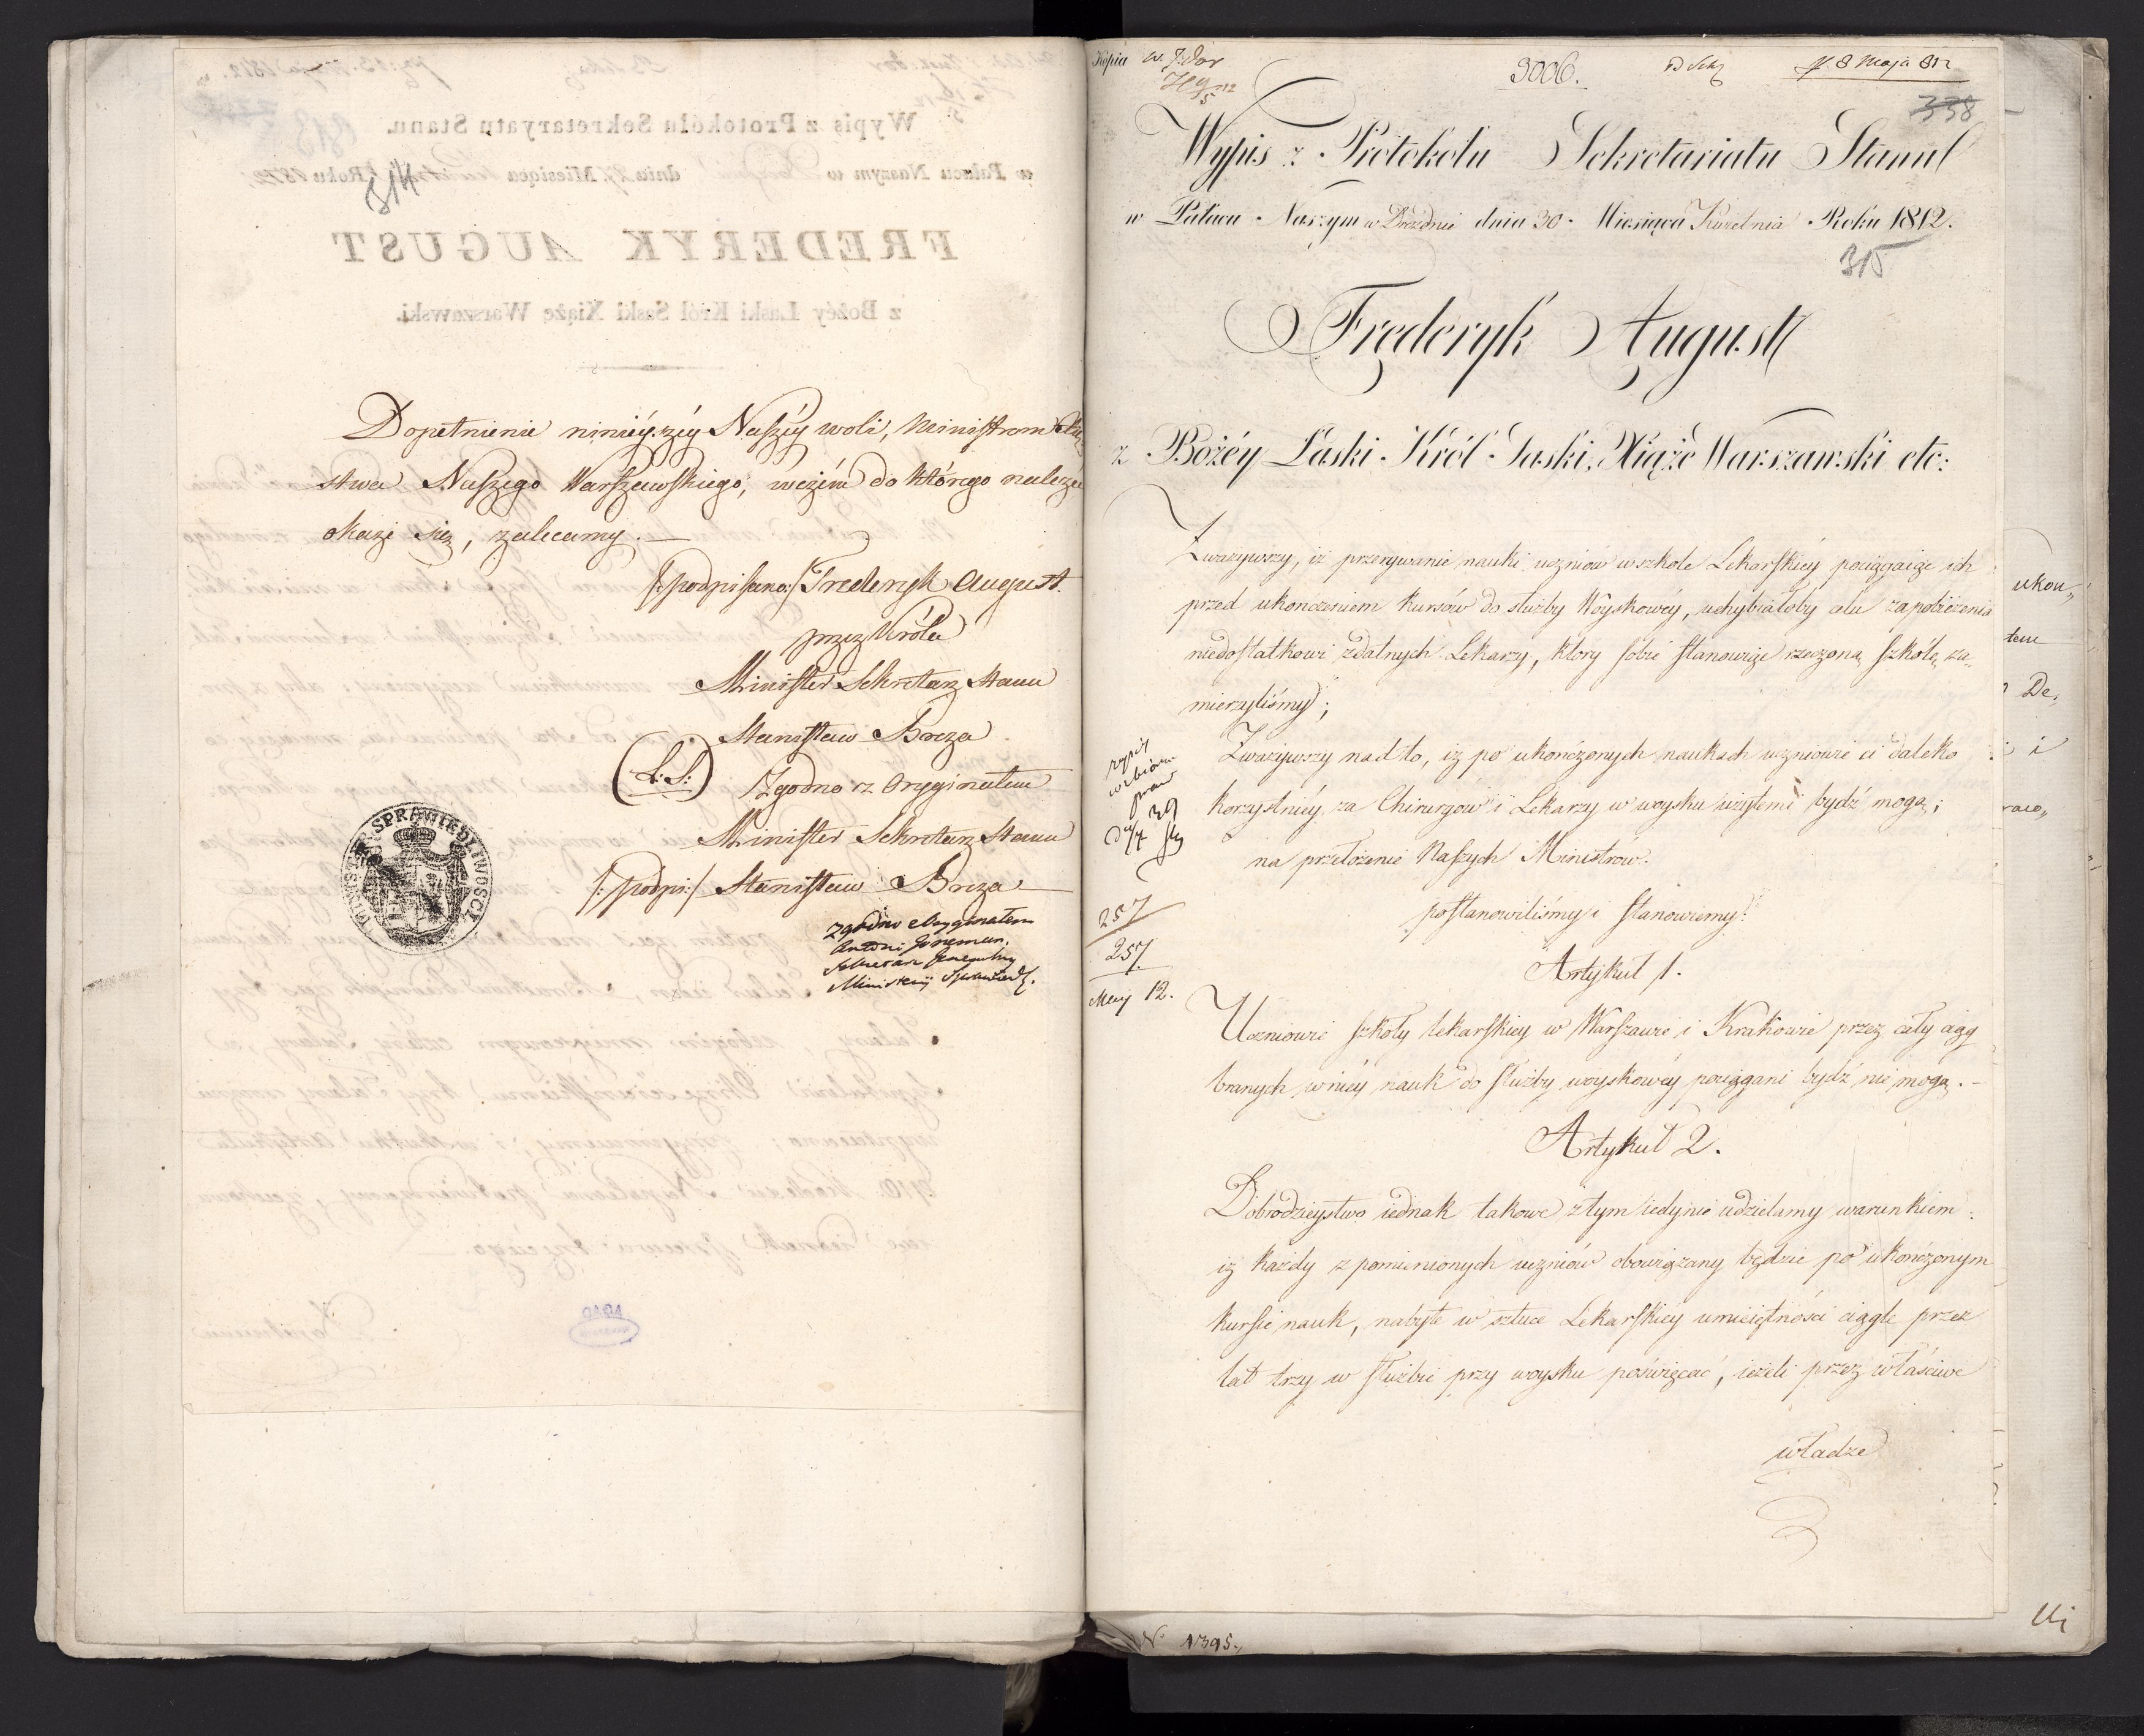 314
Dopełnienie ninieyszéy Naszéy woli, Ministrom Xię
stwa Naszego Warszawskiego, wczém do którego należéć
okaże się, zalecamy. —
/:podpisano:/ Frederyk August.
przez Króla
Minister Sekretarz Stanu
Stanisław Breza
(L: S:)
Zgodno z Oryginałem
Minister Sekretarz Stanu
/:podpi:/ Stanisław Breza
zgodno z Oryginałem
Antoni
Sekretarz Generalny
Ministerij Sprawiedl.
MINISTER SPRAWIEDLIWOSCI
AGAD
Kopia
3006.
d. 8 Maja 812
338
Wypis z Protokołu Sekretariatu Stanu
w Pałacu Naszym w Dreźdnie dnia 30 Miesiąca Kwietnia Roku 1812.
315
Frederyk August
z Bożéy Łaski Król Saski, Xiąże Warszawski etc:
Zważywszy, iż przerywanie nauki uczniów w szkole Lekarskiéy pociągaiąc ich
przed ukończeniem kursów do służby Woyskowéy, uchybiałoby celu zapobieżenia
niedostatkowi zdatnych Lekarzy, który sobie stanowiąc rzeczoną szkołę, za-
mierzyliśmy;
Zważywszy nadto, iż po ukończonych naukach uczniowie ci daleko
korzystniéy za Chirurgów i Lekarzy w woysku użytemi bydź mogą;
na przełożenie Naszych Ministrów.
postanowiliśmy i stanowiemy:
Artykuł 1.
Uczniowie szkoły lekarskiey w Warszawie i Krakowie przez cały ciąg
branych w niéy nauk do służby woyskowéy pociągani bydź nie mogą. —
Artykuł 2.
Dobrodzieystwo iednak takowe z tym iedynie udzielamy warunkiem:
iż każdy z pomienionych uczniów obowiązany będzie po ukończonym
kursie nauk, nabyte w sztuce Lekarskiey umieiętności ciągle przez
lat trzy w służbie przy woysku poświęcać, ieżeli przez właściwe
władze
257
257.
May 12.
ukon„
tem
De,
i
N. 1395.